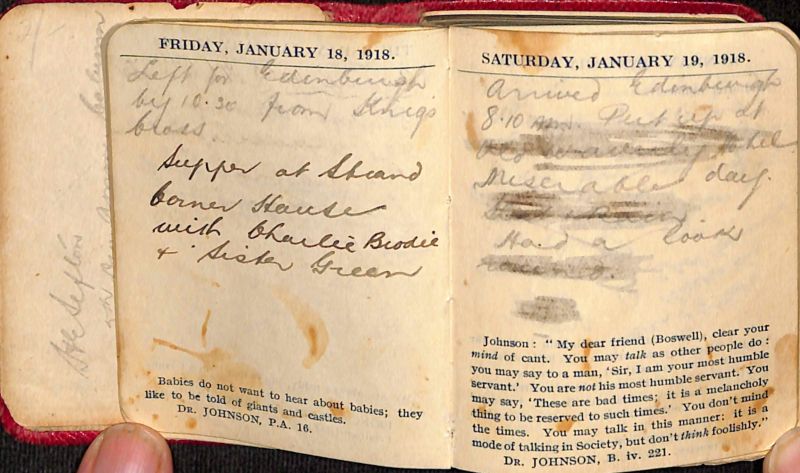 FRIDAY, JANUARY 18, 1918.
Left for Edinburgh
by 10.30 from King's
Cross
Supper at Strand
Corner House
with Charlie Brodie
& Sister Green
Babies do not want to hear about babies; they
like to be told of giants and castles.
DR. JOHNSON, P.A. 16.
SATURDAY, JANUARY 19, 1918.
Arrived Edinburgh
8.10 AM. Put up at
Hotel
Miserable day.
Had a look
round.
Johnson: "My dear friend (Boswell), clear your
mind of cant. You may talk as other people do:
you may say to a man, 'Sir, I am your most humble
servant.' You are not his most humble servant. You
may say, 'These are bad times; it is a melancholy
thing to be reserved to such times.' You don't mind
the times. You may talk in this manner: it is a
mode of talking in Society, but don't think foolishly."
DR. JOHNSON, B. iv. 221.